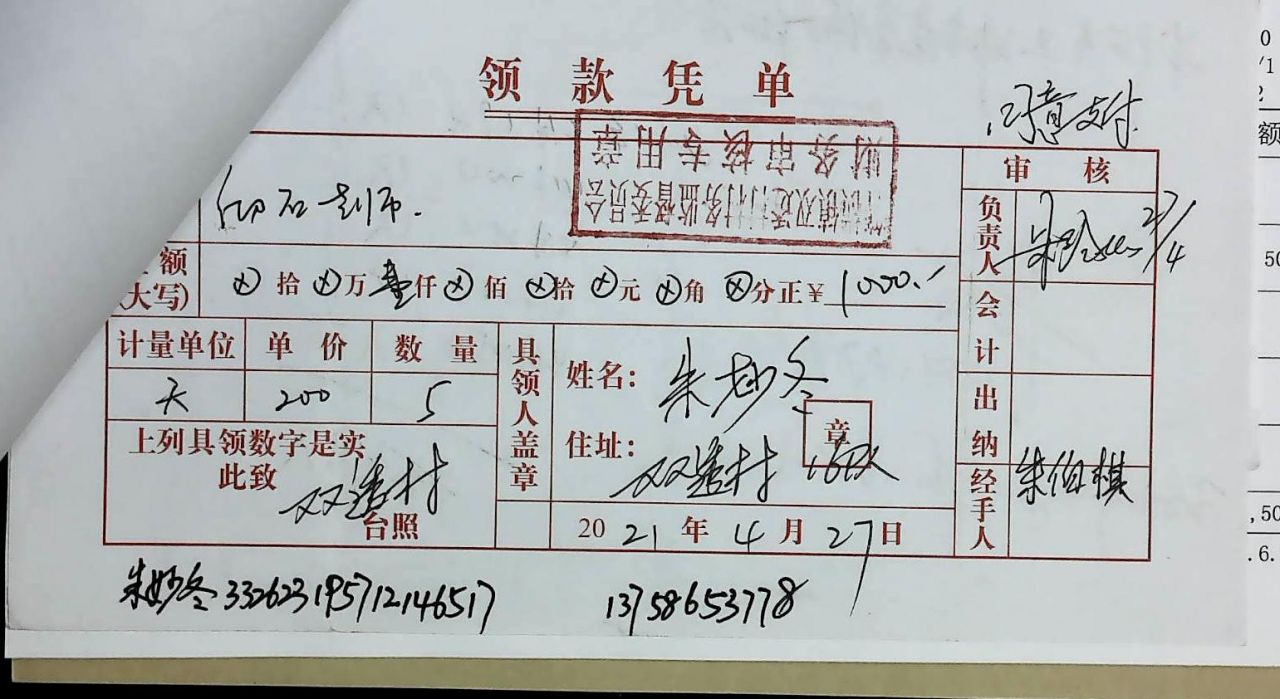 领款凭单
同意支付
审核
额
(大写)
⊗拾⊗万壹仟⊗佰⊗拾⊗元⊗角⊗分正¥1000.-
负责人
会计
出纳
经手人 朱伯棋
计量单位 单价 数量
天 200 5
上列具领数字是实
此致
双透村
台照
具领人盖章
姓名: 朱妙冬
住址: 双透村
章
2021年4月27日
27/4
财务审核专用章
朱妙冬 332623195712146517 13758653778
0
/1
2
额
50
,50
.6.